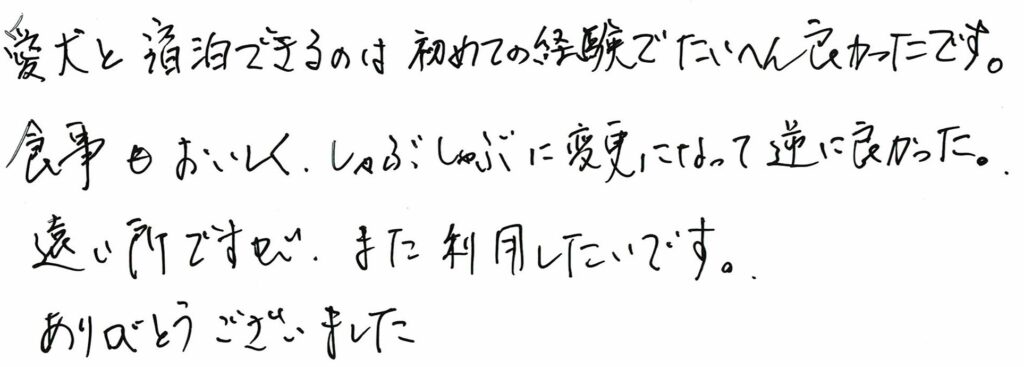 愛犬と宿泊できるのは初めての経験でたいへん良かったです。
食事もおいしく、しゃぶしゃぶに変更になって逆に良かった。
遠い所ですが、また利用したいです。
ありがとうございました